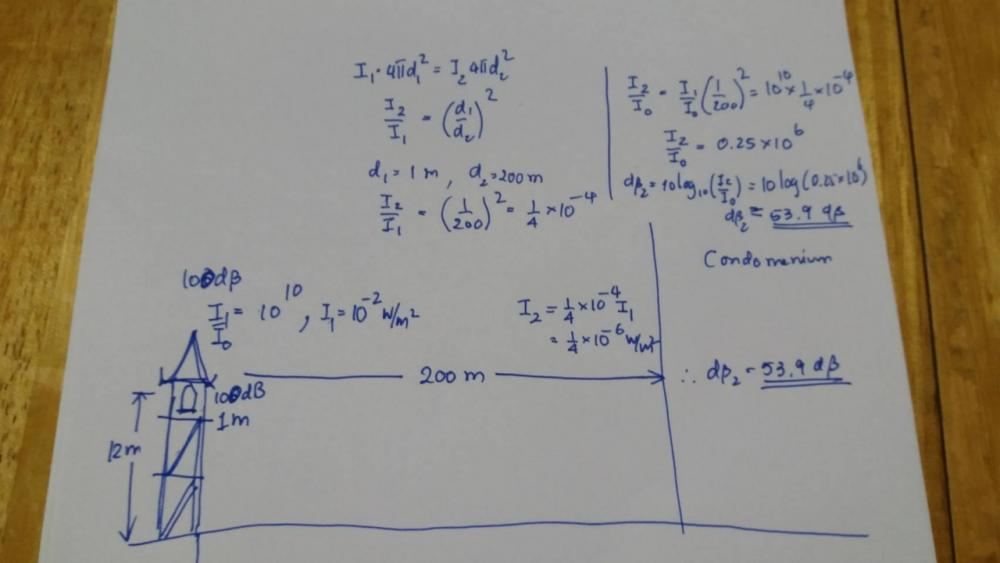 I₁·4πd₁² = I₂4πd₂²
I₂/I₁ = (d₁/d₂)²
d₁=1m, d₂=200m
I₂/I₁ = (1/200)² = 1/4 × 10⁻⁴
I₂/I₀ = I₁/I₀ (1/200)² = 10¹⁰ × 1/4 × 10⁻⁴
I₂/I₀ = 0.25×10⁶
dβ₂ = 10log₁₀(I₂/I₀) = 10log(0.25×10⁶)
dβ₂ = 53.9 dβ
Condomenium
100dβ
I₁/I₀ = 10¹⁰, I₁ = 10⁻² w/m²
I₂ = 1/4 × 10⁻⁴ I₁
= 1/4 × 10⁻⁶ w/m²
200 m
∴ dβ₂ = 53.9 dβ
100dB
1m
12m